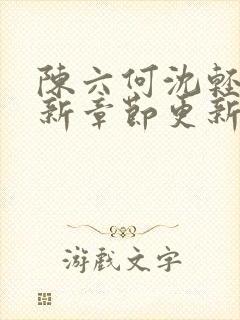 陳六何沈輕
新章節更新
游戲文字